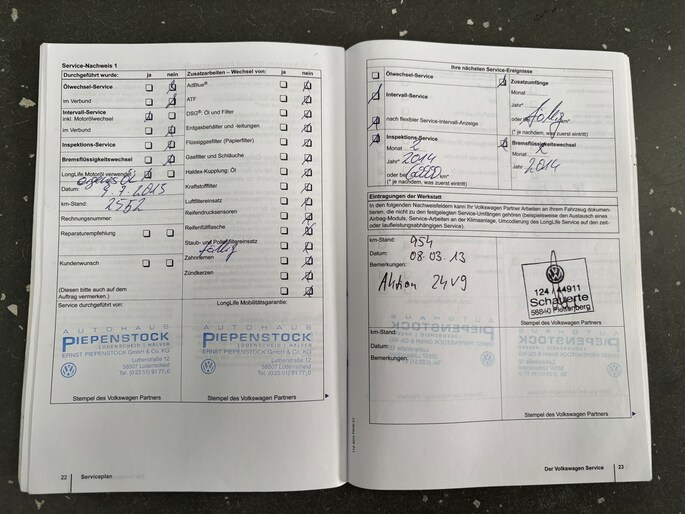 Service-Nachweis 1
Durchgeführt wurde: ja nein
Ölwechsel-Service
im Verbund
Intervall-Service
inkl. Motorölwechsel
im Verbund
Inspektions-Service
Bremsflüssigkeitswechsel
LongLife Motoröl verwendet
Datum:
km-Stand: 2552
Rechnungsnummer:
Reparaturempfehlung
Kundenwunsch
(Diesen bitte auch auf dem
Auftrag vermerken.)
Service durchgeführt von:
AUTOHAUS
PIEPENSTOCK
LÜDENSCHEID | HALVER
ERNST PIEPENSTOCK GmbH & Co. KG
58507 Lüdenscheid
Tel. (02351) 9177-0
Stempel des Volkswagen Partners
Zusatzarbeiten – Wechsel von: ja nein
AdBlue®
ATF
DSG®: Öl und Filter
Erdgasbehälter und -leitungen
Flüssiggasfilter (Papierfilter)
Gasfilter und Schläuche
Haldex-Kupplung: Öl
Kraftstofffilter
Luftfiltereinsatz
Reifendrucksensoren
Reifenfüllflasche
Staub- und Pollenfiltereinsatz
fällig
Zahnriemen
Zündkerzen
LongLife Mobilitätsgarantie:
AUTOHAUS
PIEPENSTOCK
LÜDENSCHEID | HALVER
ERNST PIEPENSTOCK GmbH & Co. KG
58507 Lüdenscheid
Tel. (02351) 9177-0
Stempel des Volkswagen Partners
22 Serviceplan
Ihre nächsten Service-Ereignisse
Ölwechsel-Service
Intervall-Service
nach flexibler Service-Intervall-Anzeige
Inspektions-Service
Monat 2
Jahr* 2014
oder bei
(* je nachdem, was zuerst eintritt)
Zusatzumfänge
Monat
Jahr*
fällig
(* je nachdem, was zuerst eintritt)
Bremsflüssigkeitswechsel
Monat 2
Jahr 2014
Eintragungen der Werkstatt
In den folgenden Nachweisfeldern kann Ihr Volkswagen Partner Arbeiten an Ihrem Fahrzeug dokumen-
tieren, die nicht zu den festgelegten Service-Umfängen gehören (beispielsweise den Austausch eines
Airbag-Moduls, Service-Arbeiten an der Klimaanlage, Umcodierung des LongLife Service auf den zeit-
oder laufleistungsabhängigen Service).
km-Stand: 954
Datum: 08.03.13
Bemerkungen:
Aktion 24V9
124 / 44911
Schauerte
58840 Plettenberg
Stempel des Volkswagen Partners
km-Stand:
Datum:
Bemerkungen:
Stempel des Volkswagen Partners
Der Volkswagen Service 23